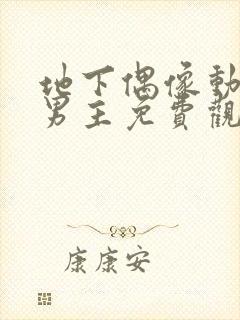 地下偶像動
男主免費觀
康康安